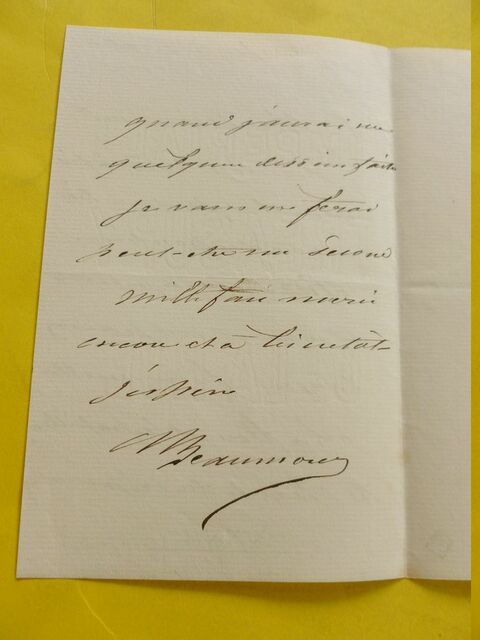 quand j'aurai vu
quelques dessins faits
je vous en ferai
peut-etre un second
mille fois merci
encore et à bientôt
j'espère
Beaumont